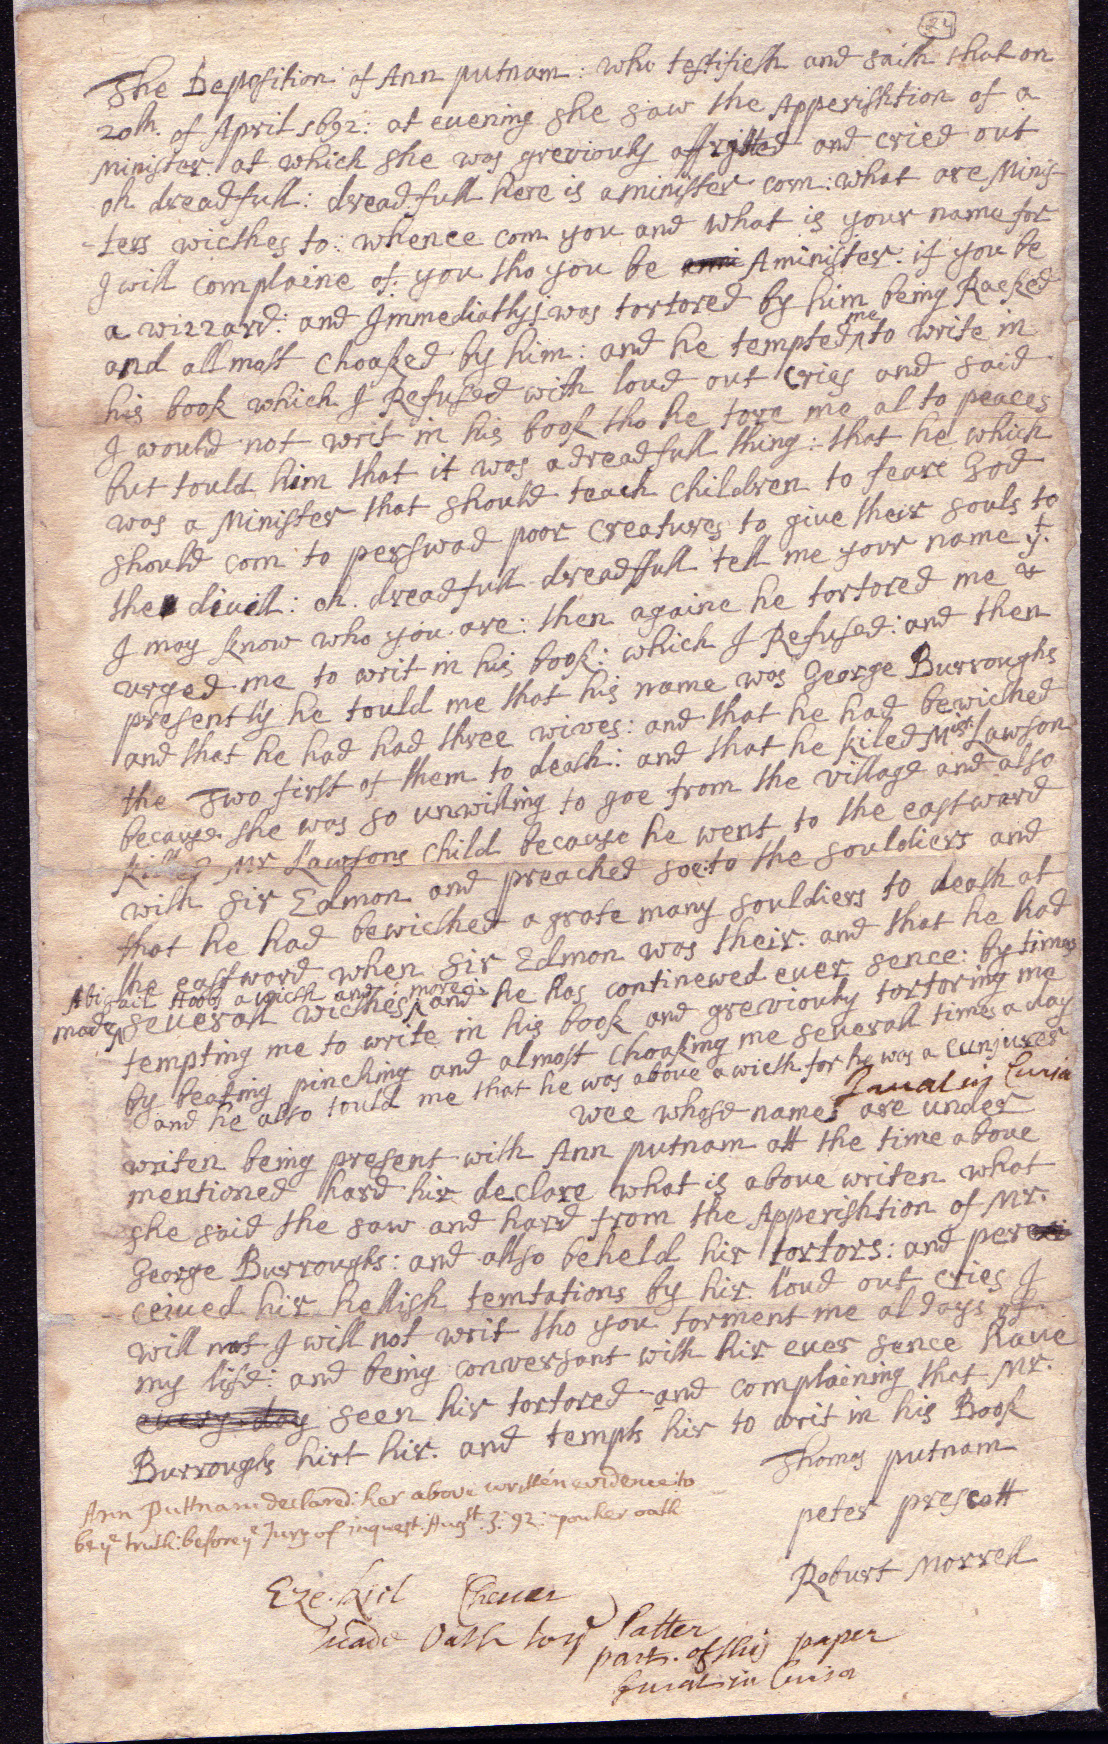 24
The Deposition of Ann putnam: who testifieth and saith that on
20th. of April 1692: at euening she saw the Apperishtion of a
Minister: at which she was greviously affrighted and cried out
oh dreadfull: dreadfull here is a minister com: what are Minis-
-ters wicthes to: whence com you and what is your name for
I will complaine of you tho you be A minister: if you be
a wizzard: and Immediathy I was tortored by him being Racked
and allmost choaked by him: and he tempted me to write in
his book which I Refused with loud out cries and said
I would not writ in his book tho he tore me al to peaces
but tould him that it was a dreadfull thing: that he which
was a Minister that should teach children to feare God
should com to perswad poor creatures to give their souls to
the diuill: oh. dreadfull dreadfull tell me your name yt.
I may know who you are: then againe he tortored me &
urged me to writ in his book: which I Refused: and then
presently he tould me that his name was George Burroughs
and that he had had three wives: and that he had bewicthed
the Two first of them to death: and that he kiled Mist. Lawson
because she was so unwilling to goe from the village and also
killed Mr Lawsons child because he went to the eastward
with Sir Edmon and preached soe: to the souldiers and
that he had bewicthed a grate many souldiers to death at
the eastword when Sir Edmon was their. and that he had
made Abigail Hobbs a wicth and: seuerall wicthes more: and he has continewed euer sence: by times
tempting me to write in his book and greviously tortoring me
by beating pinching and almost choaking me seuerall times a day
and he also tould me that he was above a wicth for he was a cunjurer
Jurat in Curia
wee whose names are under
writen being present with Ann putnam att the time above
mentioned hard hir declare what is above writen what
she said she saw and hard from the Apperishtion of Mr.
George Burroughs: and allso beheld hir tortors: and per
ceiued hir hellish temtations by hir loud out cries I
will not I will not writ tho you torment me al days of
my life: and being conversant with hir euer sence haue
euery day seen hir tortored and complaining that Mr.
Burroughs hirt hir. and tempts hir to writ in his Book
Thomas putnam
Ann Puttnam declared: her above written evidence: to
be ye truth: before ye Jury of inquest: Augst. 3: 92: upon her oath
peter prescott
Roburt Morrell
Eze-kiel Cheuer
made Oath to ye Latter
part. of this paper
Jurat in Curia